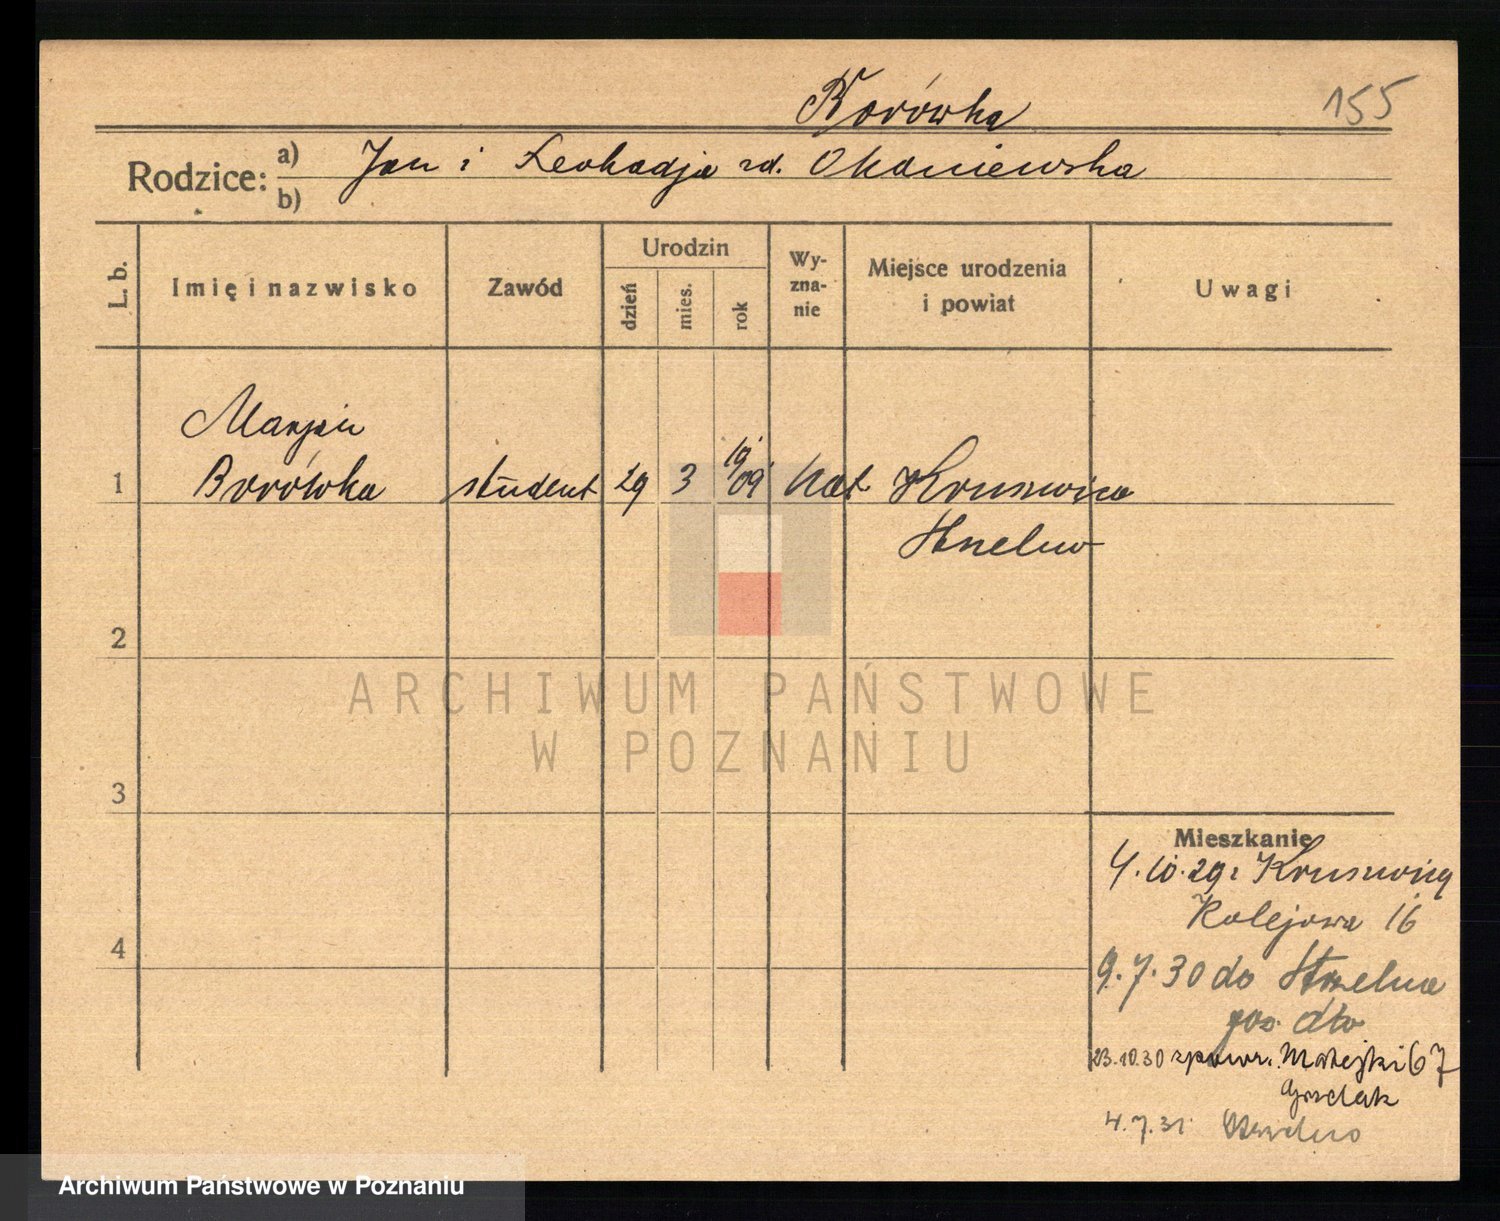 Borówka
155
Rodzice: a) Jan i Leokadja zd. Okoniewska
b)
L. b. Imię i nazwisko Zawód Urodzin dzień mies. rok Wyznanie Miejsce urodzenia i powiat Uwagi
Marjan
1 Borówka student 29 3 19/09 kat. Kruszwica
Strzelno
2
3
4
Mieszkanie
4.10.29. Kruszwicy
Kolejowa 16
9.7.30 do Strzelna
pow. dto
23.10.30 zpowr. Matejki 67
4.7.31 Strzelno
ARCHIWUM PAŃSTWOWE
W POZNANIU
Archiwum Państwowe w Poznaniu